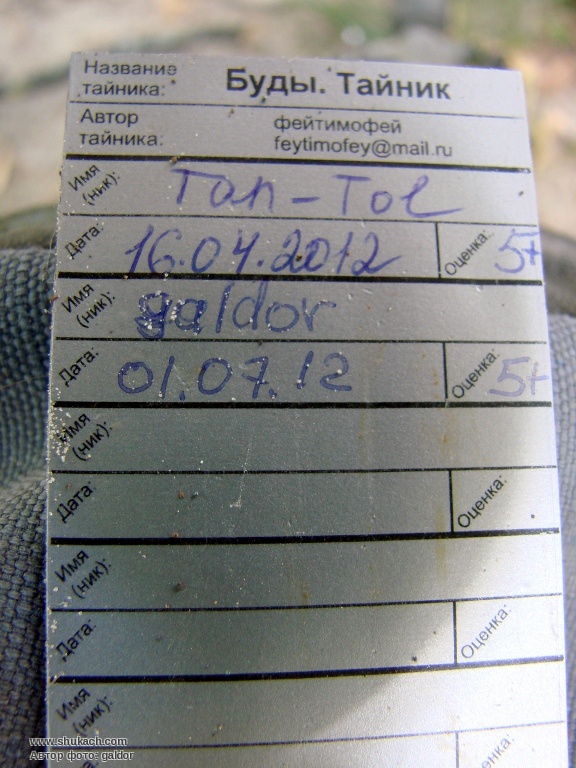 Название тайника: Буды. Тайник
Автор тайника: фейтимофей feytimofey@mail.ru
Имя (ник): Tan-Tol
Дата: 16.04.2012 Оценка: 5+
Имя (ник): galdor
Дата: 01.07.12 Оценка: 5+
Имя (ник):
Дата: Оценка:
Имя (ник):
Дата: Оценка:
Имя (ник):
www.shukach.com
Автор фото: galdor